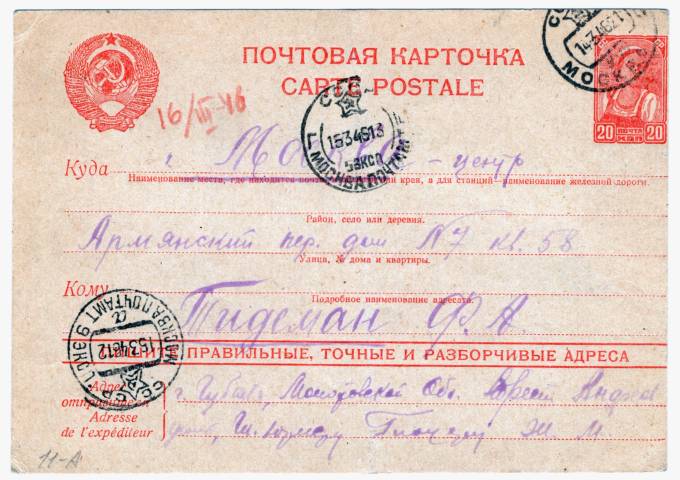 ПОЧТОВАЯ КАРТОЧКА
CARTE POSTALE
СССР МОСКВА 14 3 46 21
ПОЧТА
20 КОП 20
16/III-46
СССР 15 3 46 13
5 эксп
Г. МОСКВА ПОЧТАМТ
Куда г. Москва - центр
Наименование места, где находится почта, области или края, а для станций - наименование железной дороги.
Район, село или деревня.
Армянский пер. дом N7 кв. 58
Улица, № дома и квартиры.
Кому Тидеман Ф. А.
Подробное наименование адресата.
МОСКВА ПОЧТАМТ 15 3 46 12
ПИШИТЕ ПРАВИЛЬНЫЕ, ТОЧНЫЕ И РАЗБОРЧИВЫЕ АДРЕСА
Адрес отправителя г. Губаха, Молотовской Обл.
Adresse
de l'expéditeur
11-А